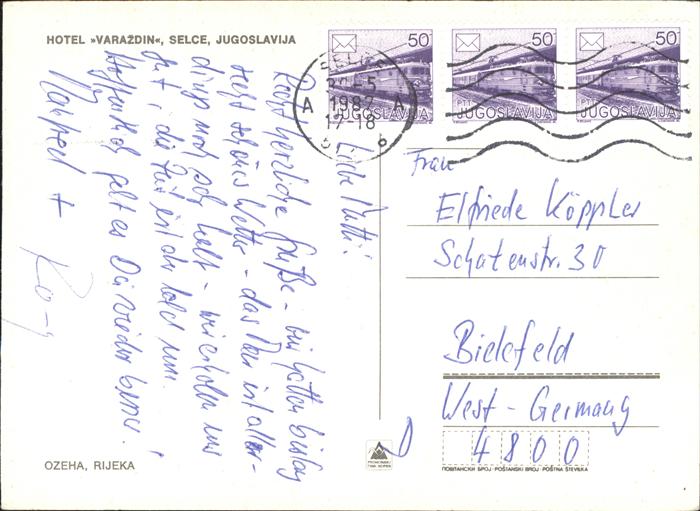 HOTEL »VARAŽDIN«, SELCE, JUGOSLAVIJA
50
50
50
PTT JUGOSLAVIJA
PTT JUGOSLAVIJA
PTT JUGOSLAVIJA
SELCE
1987
17-18
A A
b
Liebe Mutti!
Recht herzliche Grüße - wir hatten bislang
recht schönes Wetter - das Meer ist aller-
dings noch sehr kalt - wir erholen uns
gut, die Zeit ist aber bald um.
Hoffentlich geht es Dir wieder besser!
Manfred +
Frau
Elfriede Köppler
Schatenstr. 30
Bielefeld
West-Germany
D
4800
ПОШТАНСКИ БРОЈ · POŠTANSKI BROJ · POŠTNA ŠTEVILKA
OZEHA, RIJEKA